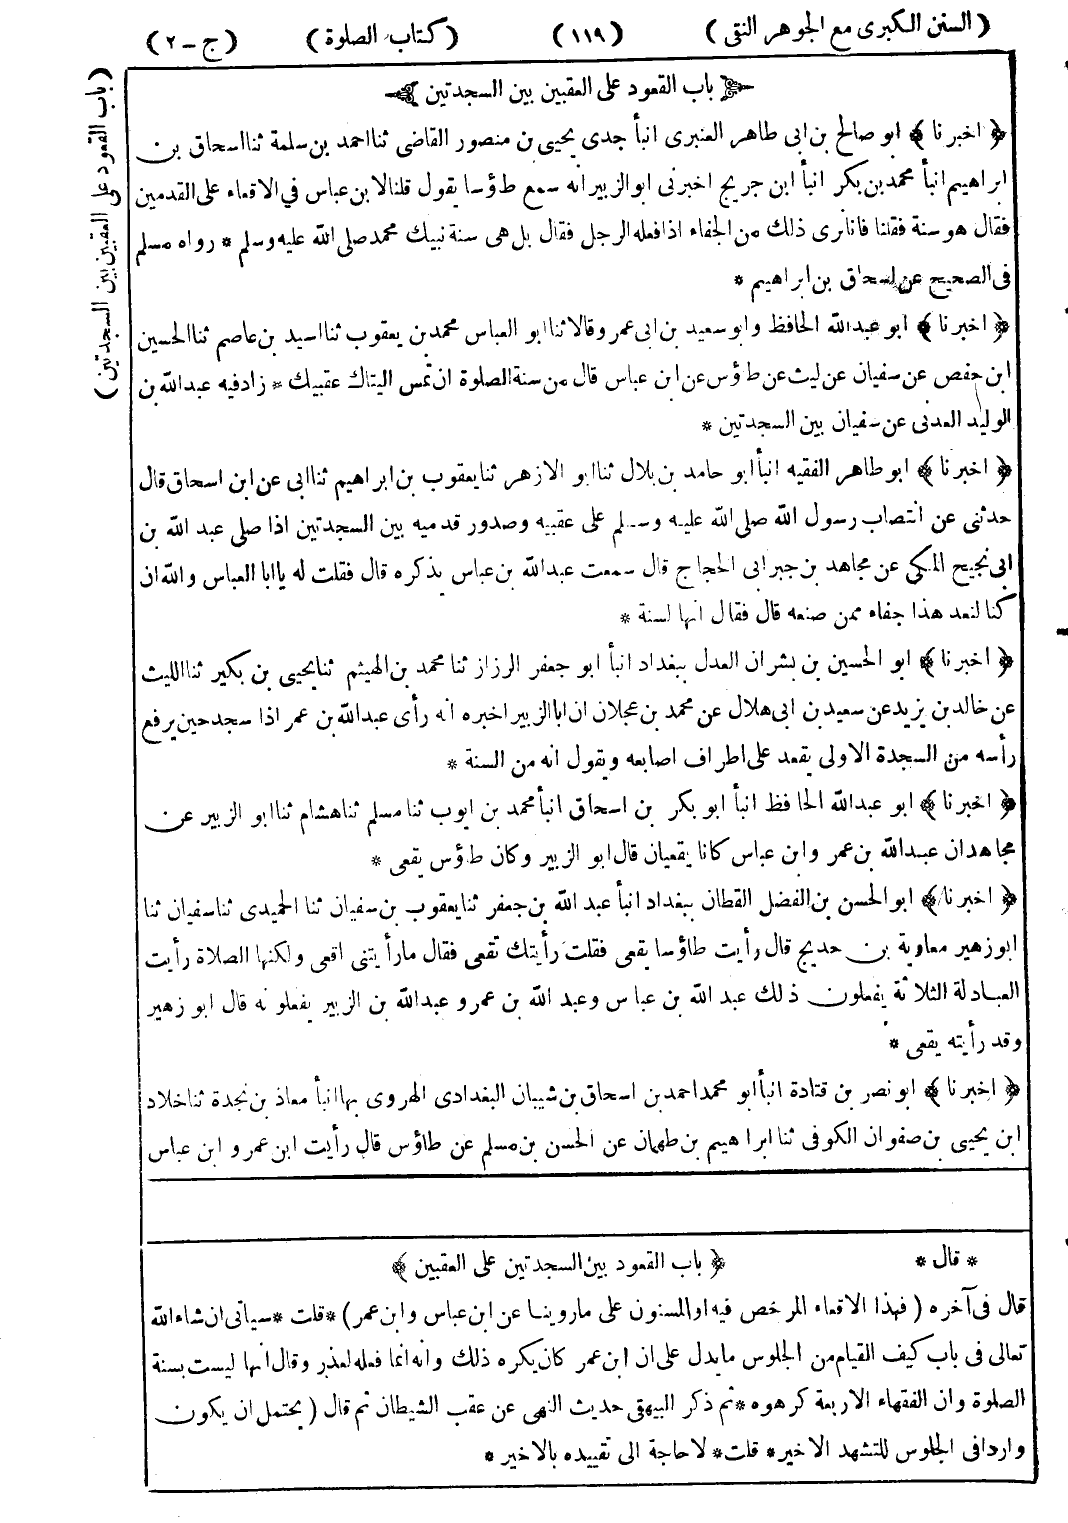 (السنن الكبرى مع الجوهر النقى) (١١٩) (كتاب الصلوة) (ج-٢)
باب القعود على العقبين بين السجدتين
(باب القعود على العقبين بين السجدتين)
﴿اخبرنا﴾ ابو صالح بن ابى طاهر العنبرى انبأ جدى يحيى بن منصور القاضى ثنا احمد بن سلمة ثنا اسحاق بن
ابراهيم انبأ محمد بن بكر انبأ ابن جريج اخبرنى ابو الزبير انه سمع طاؤسا يقول قلنا لابن عباس في الاقعاء على القدمين
فقال هو سنة فقلنا فانا نرى ذلك من الجفاء اذا فعله الرجل فقال بل هى سنة نبيك محمد صلى الله عليه وسلم * رواه مسلم
فى الصحيح عن اسحاق بن ابراهيم *
﴿اخبرنا﴾ ابو عبد الله الحافظ وابو سعيد بن ابى عمرو قالا ثنا ابو العباس محمد بن يعقوب ثنا اسيد بن عاصم ثنا الحسين
ابن حفص عن سفيان عن ليث عن طاؤس عن ابن عباس قال من سنة الصلوة ان تمس اليتاك عقبيك * زاد فيه عبد الله بن
الوليد العدنى عن سفيان بين السجدتين *
﴿اخبرنا﴾ ابو طاهر الفقيه انبأ ابو حامد بن بلال ثنا ابو الازهر ثنا يعقوب بن ابراهيم ثنا ابى عن ابن اسحاق قال
حدثنى عن انتصاب رسول الله صلى الله عليه وسلم على عقبيه وصدور قدميه بين السجدتين اذا صلى عبد الله بن
ابى نجيح المكى عن مجاهد بن جبر ابى الحجاج قال سمعت عبد الله بن عباس يذكره قال فقلت له يا ابا العباس والله ان
كنا لنعد هذا جفاء ممن صنعه قال فقال انها لسنة *
﴿اخبرنا﴾ ابو الحسين بن بشران العدل ببغداد انبأ ابو جعفر الرزاز ثنا محمد بن الهيثم ثنا يحيى بن بكير ثنا الليث
عن خالد بن يزيد عن سعيد بن ابى هلال عن محمد بن عجلان ان ابا الزبير اخبره انه رأى عبد الله بن عمر اذا سجد حين يرفع
رأسه من السجدة الاولى يقعد على اطراف اصابعه ويقول انه من السنة *
﴿اخبرنا﴾ ابو عبد الله الحافظ انبأ ابو بكر بن اسحاق انبأ محمد بن ايوب ثنا مسلم ثنا هشام ثنا ابو الزبير عن
مجاهد ان عبد الله بن عمر وابن عباس كانا يقعيان قال ابو الزبير وكان طاؤس يقعى *
﴿اخبرنا﴾ ابو الحسن بن الفضل القطان ببغداد انبأ عبد الله بن جعفر ثنا يعقوب بن سفيان ثنا الحميدى ثنا سفيان ثنا
ابو زهير معاوية بن حديج قال رأيت طاؤسا يقعى فقلت رأيتك تقعى فقال ما رأيتنى اقعى ولكنها الصلاة رأيت
العبادلة الثلاثة يفعلون ذلك عبد الله بن عباس وعبد الله بن عمر وعبد الله بن الزبير يفعلونه قال ابو زهير
وقد رأيته يقعى *
﴿اخبرنا﴾ ابو نصر بن قتادة انبأ ابو محمد احمد بن اسحاق بن شيبان البغدادى الهروى بها انبأ معاذ بن نجدة ثنا خلاد
ابن يحيى بن صفوان الكوفى ثنا ابراهيم بن طهمان عن الحسن بن مسلم عن طاؤس قال رأيت ابن عمر و ابن عباس
* قال * ﴿باب القعود بين السجدتين على العقبين﴾
قال فى آخره (فهذا الاقعاء المرخص فيه او المسنون على ما روينا عن ابن عباس وابن عمر) *قلت* سيأتى ان شاء الله
تعالى فى باب كيف القيام من الجلوس ما يدل على ان ابن عمر كان يكره ذلك وانه انما فعله لعذر وقال انها ليست بسنة
الصلوة وان الفقهاء الاربعة كرهوه *ثم ذكر البيهقى حديث النهى عن عقب الشيطان ثم قال (يحتمل ان يكون
واردا فى الجلوس للتشهد الاخير* قلت* لا حاجة الى تقييده بالاخير *